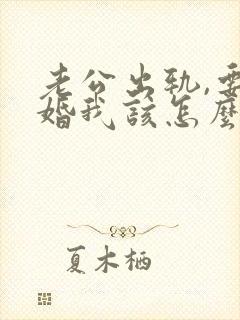 老公出轨,要
婚我该怎麼
夏木栖